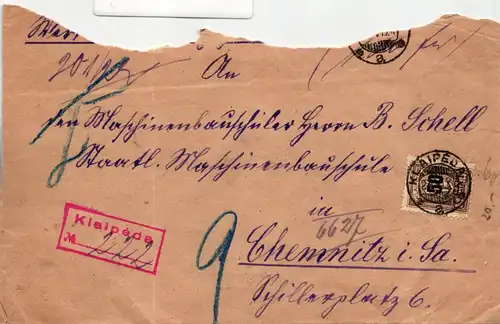 An
den Maschinenbauschüler Herrn B. Schell
Staatl. Maschinenbauschule
in
6627
Chemnitz i. Sa.
Schillerplatz 6.
Klaipėda
№ 222
9
KLAIPĖDA
a
a